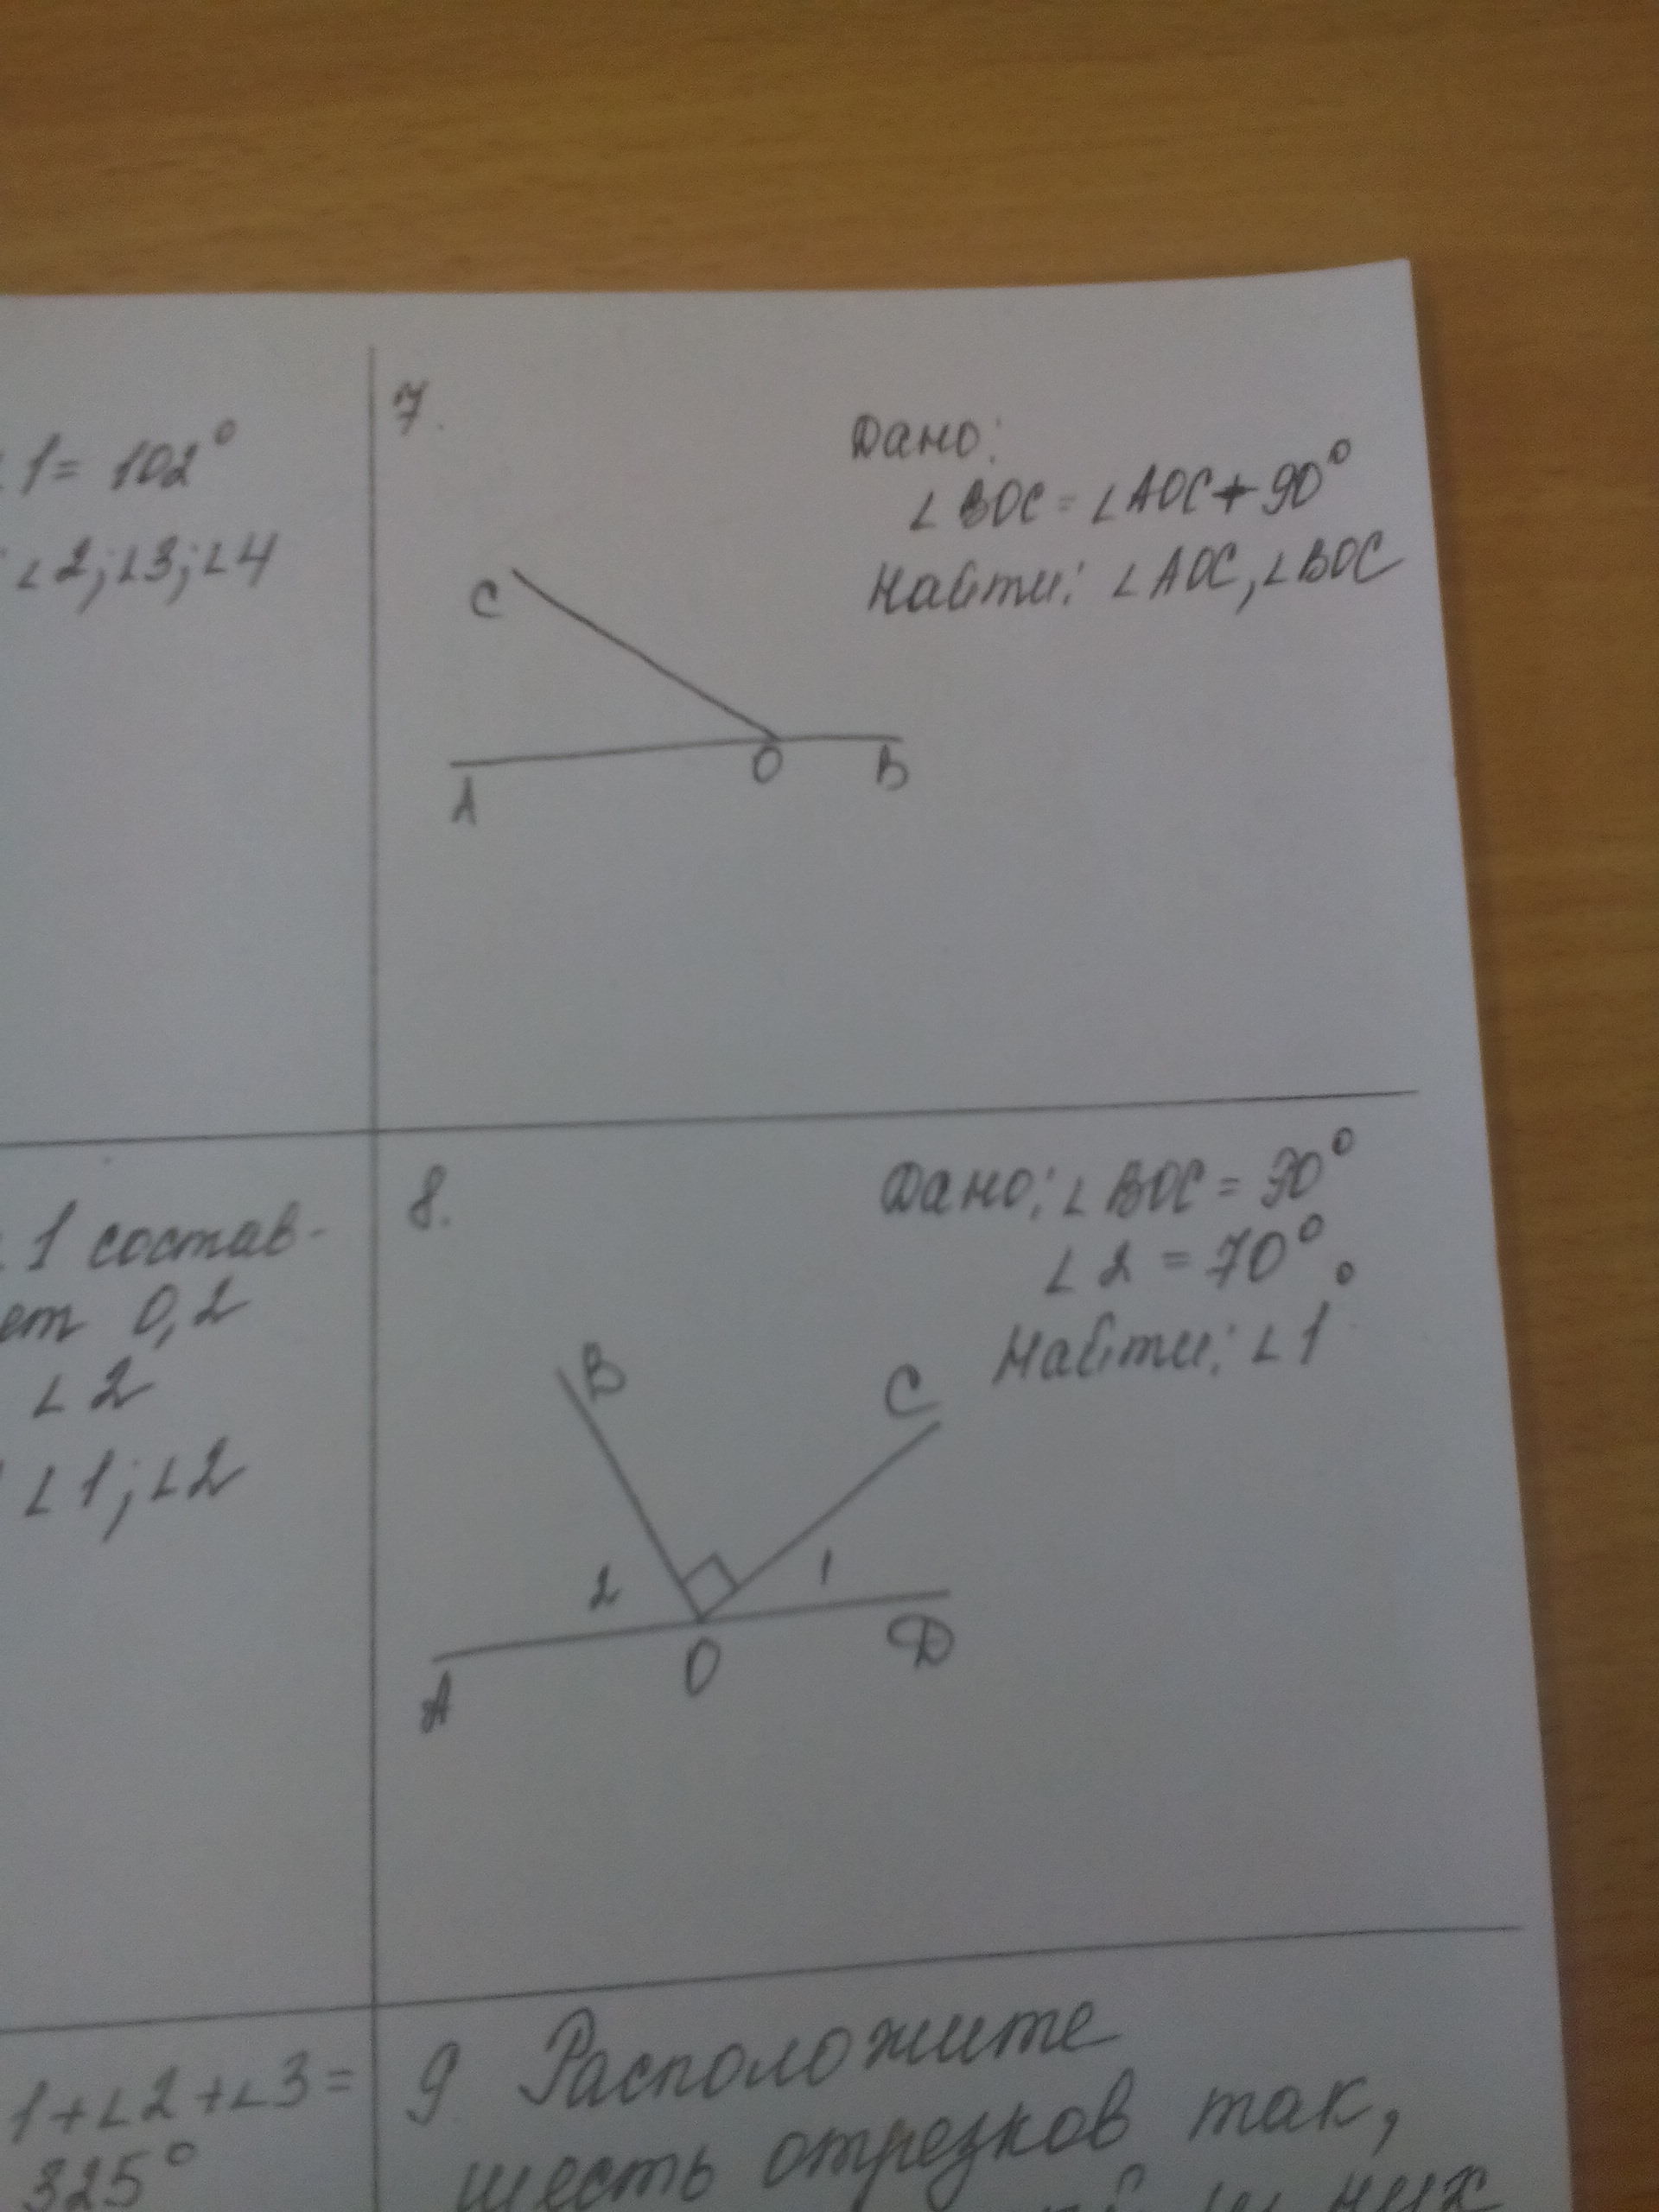 1 = 102°
∠2; ∠3; ∠4
7.
Дано:
∠BOC = ∠AOC + 90°
Найти: ∠AOC, ∠BOC
C
A
O
B
1 состав-
ет 0,2
∠2
∠1; ∠2
8.
Дано: ∠BOC = 90°
∠2 = 70°
Найти: ∠1
B
C
2
1
A
O
D
1 + ∠2 + ∠3 =
325°
9. Расположите
шесть отрезков так,
них